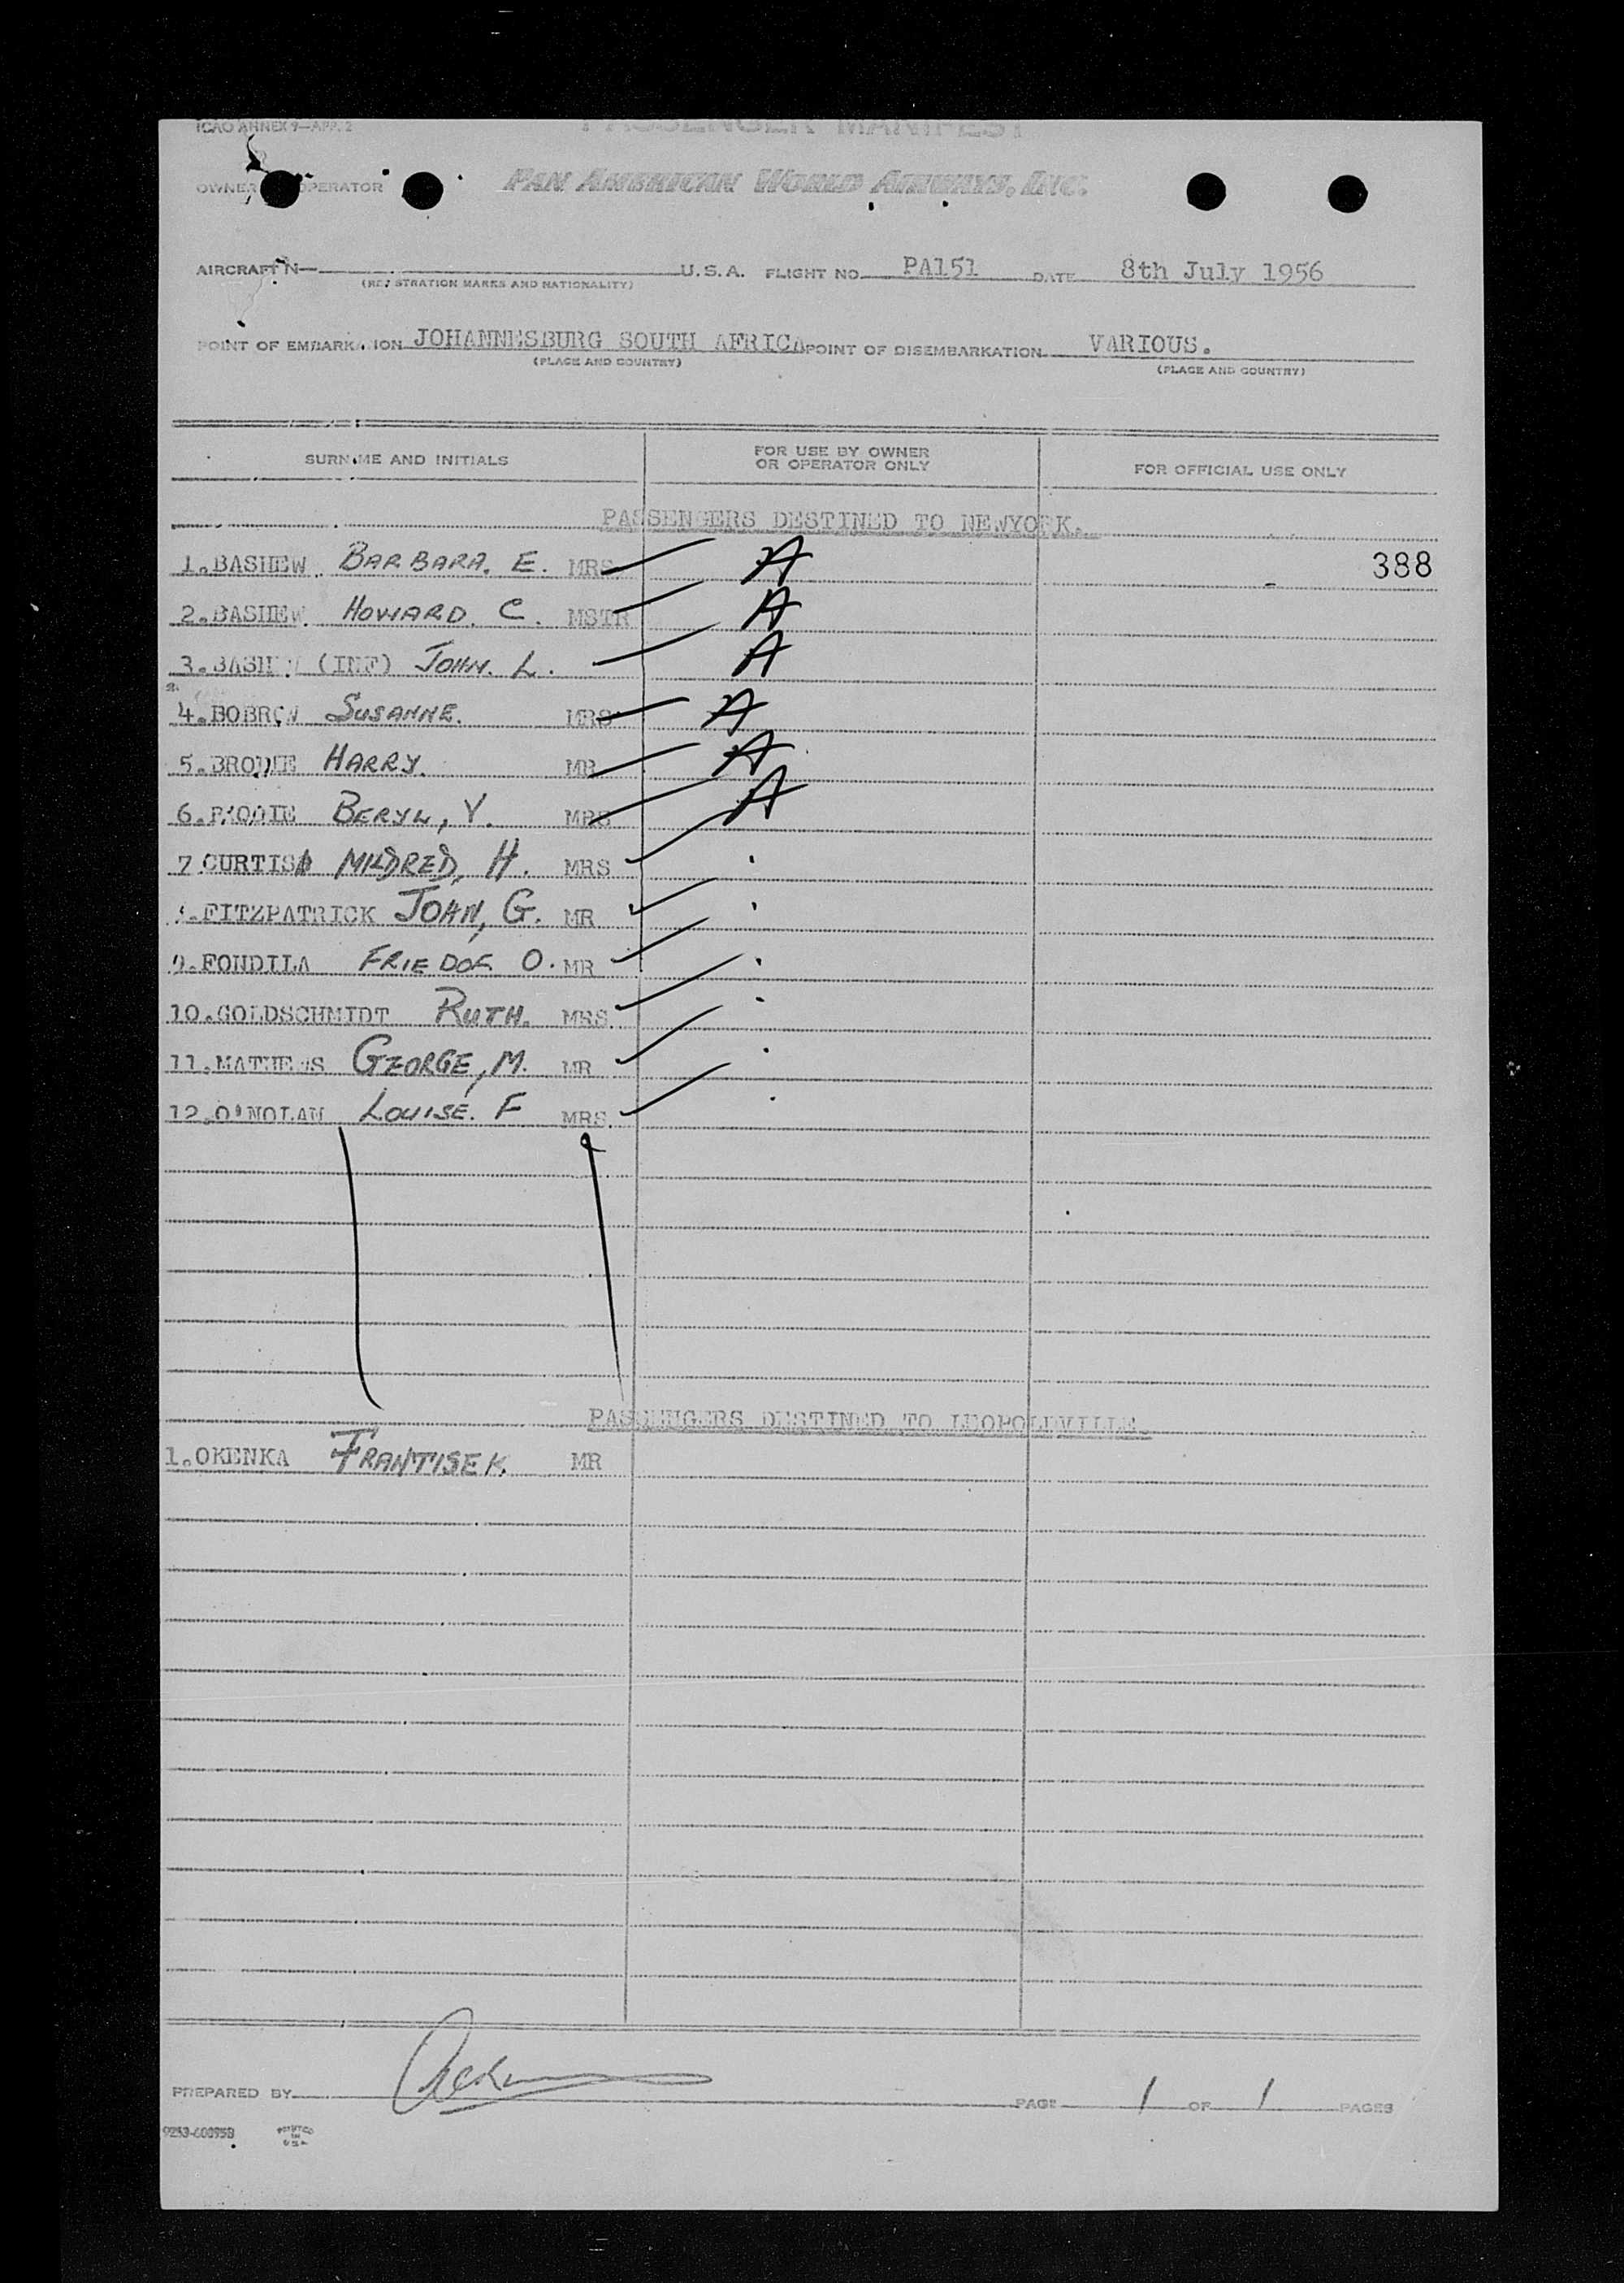 ICAO ANNEX 9—APP. 2
PASSENGER MANIFEST
OWNER OPERATOR PAN AMERICAN WORLD AIRWAYS, INC.
AIRCRAFT N— U.S.A. FLIGHT NO. PA151 DATE 8th July 1956
(REGISTRATION MARKS AND NATIONALITY)
POINT OF EMBARKATION JOHANNESBURG SOUTH AFRICA POINT OF DISEMBARKATION VARIOUS.
(PLACE AND COUNTRY) (PLACE AND COUNTRY)
SURNAME AND INITIALS FOR USE BY OWNER OR OPERATOR ONLY FOR OFFICIAL USE ONLY
PASSENGERS DESTINED TO NEWYORK.
1.BASHEW BARBARA. E. MRS A 388
2.BASHEW HOWARD. C. MSTR A
3.BASHEW (INF) JOHN. L. A
4.BOBROW SUSANNE. MRS A
5.BRODIE HARRY. MR A
6.BRODIE BERYL, Y. MRS A
7.CURTIS MILDRED, H. MRS
8.FITZPATRICK JOHN, G. MR
9.FONDILA FRIEDOF O. MR
10.GOLDSCHMIDT RUTH. MRS
11.MATHEWS GEORGE, M. MR
12.O'NOLAN LOUISE. F MRS
PASSENGERS DESTINED TO LEOPOLDVILLE.
1.OKENKA FRANTISEK. MR
PREPARED BY PAGE 1 OF 1 PAGES
9253-60095B PRINTED IN U.S.A.